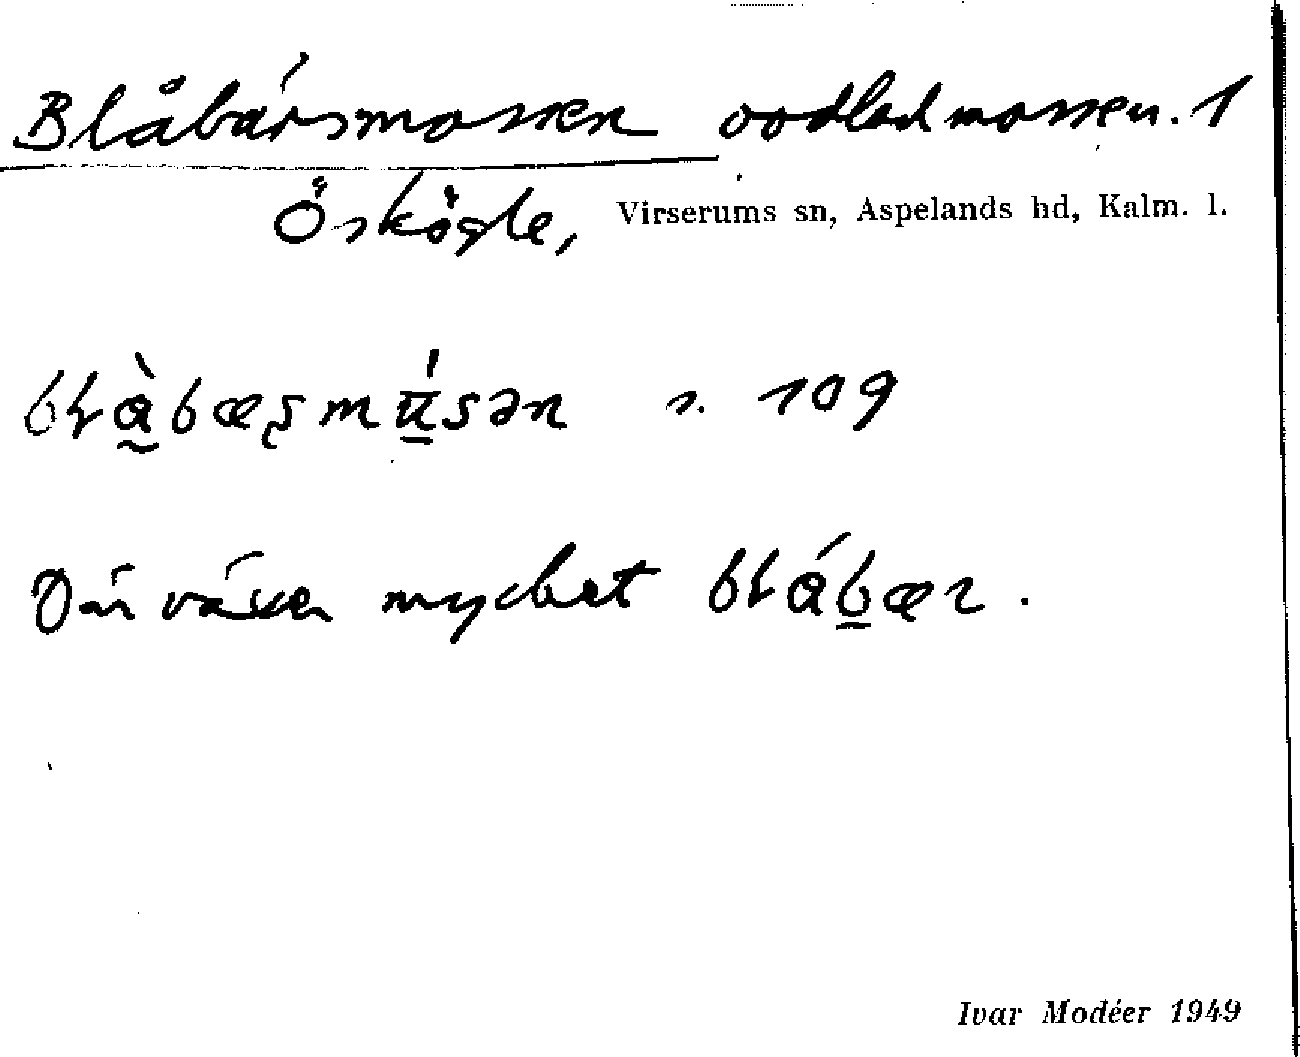 Blåbärsmossen oodlad mossen. 1
Öskögle, Virserums sn, Aspelands hd, Kalm. l.
s. 109
Där växer mycket
Ivar Modéer 1949